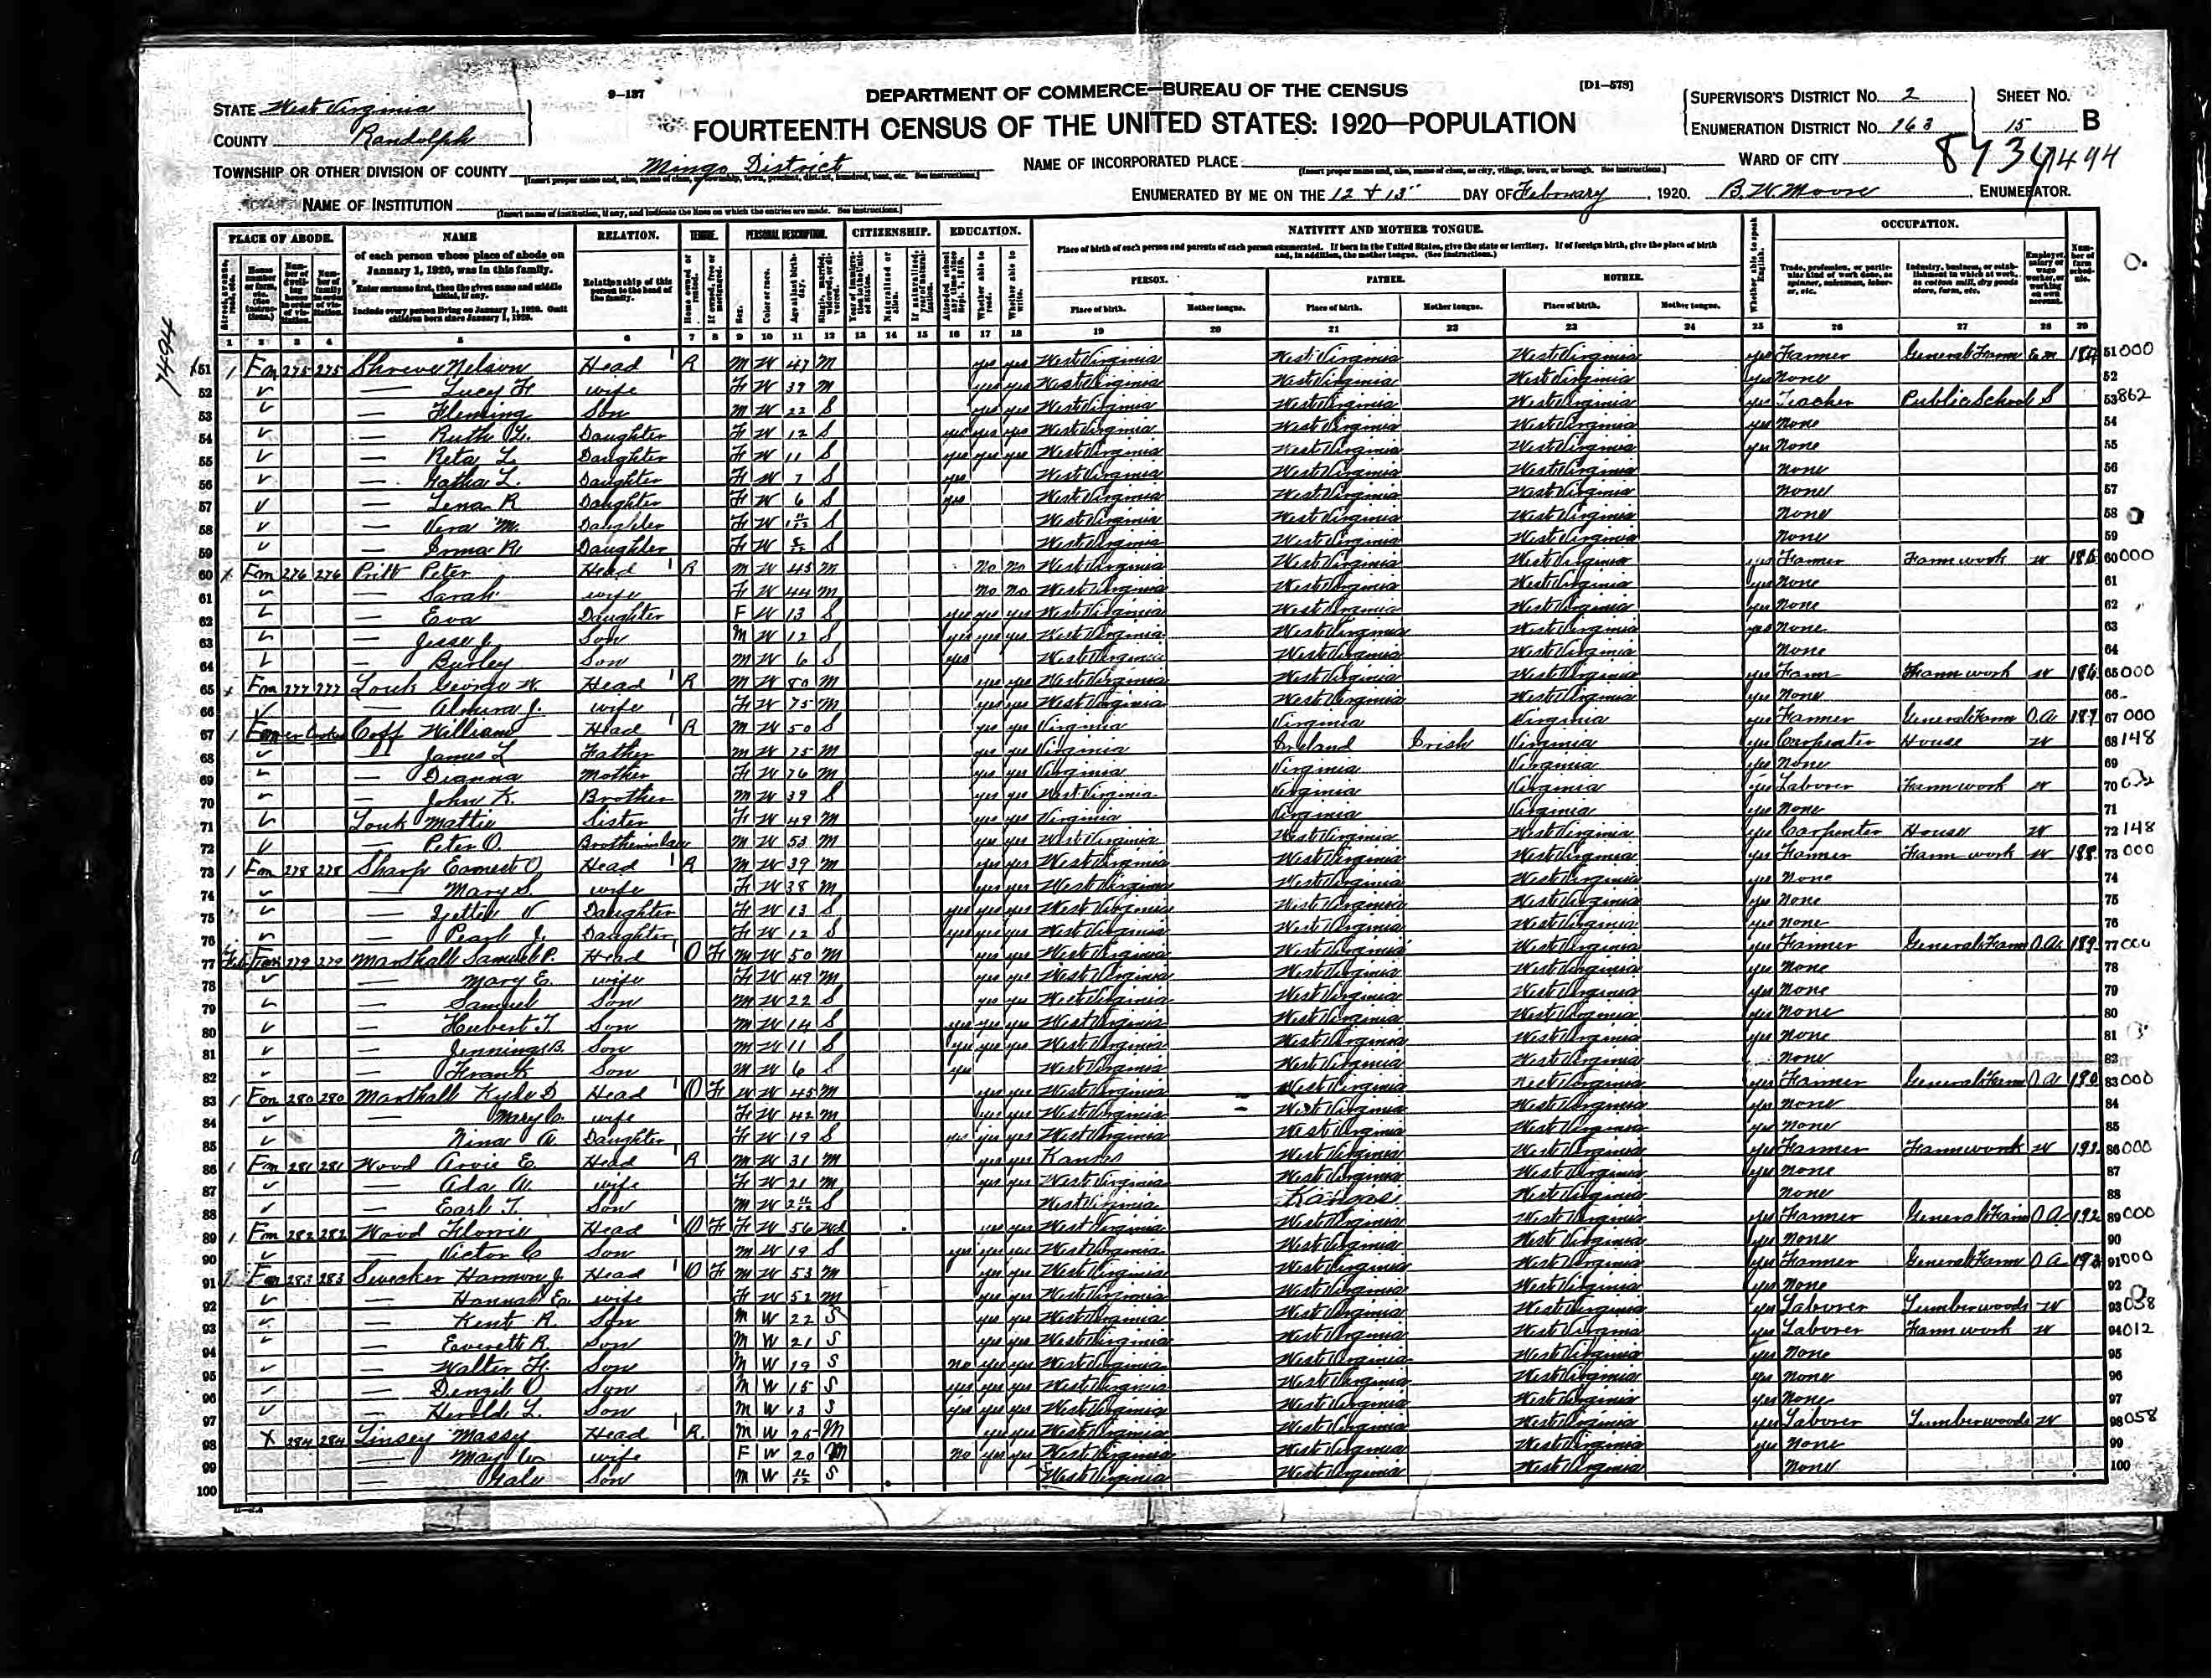 9-137
DEPARTMENT OF COMMERCE—BUREAU OF THE CENSUS
[D1-578]
FOURTEENTH CENSUS OF THE UNITED STATES: 1920—POPULATION
STATE West Virginia
COUNTY Randolph
SUPERVISOR'S DISTRICT No. 2
ENUMERATION DISTRICT No. 163
SHEET No. 15 B
TOWNSHIP OR OTHER DIVISION OF COUNTY Mingo District
NAME OF INCORPORATED PLACE
WARD OF CITY
NAME OF INSTITUTION
ENUMERATED BY ME ON THE 12 & 13" DAY OF February, 1920. B. W. Moore ENUMERATOR.
7494
PLACE OF ABODE. NAME RELATION. TENURE. PERSONAL DESCRIPTION. CITIZENSHIP. EDUCATION. NATIVITY AND MOTHER TONGUE. OCCUPATION.
of each person whose place of abode on January 1, 1920, was in this family.
Enter surname first, then the given name and middle initial, if any.
Include every person living on January 1, 1920. Omit children born since January 1, 1920.
Relationship of this person to the head of the family.
Place of birth of each person and parents of each person enumerated. If born in the United States, give the state or territory. If of foreign birth, give the place of birth and, in addition, the mother tongue. (See instructions.)
PERSON. FATHER. MOTHER.
Place of birth. Mother tongue. Place of birth. Mother tongue. Place of birth. Mother tongue.
1 2 3 4 5 6 7 8 9 10 11 12 13 14 15 16 17 18 19 20 21 22 23 24 25 26 27 28 29
51 1 Fm 275 275 Shreve Nelson Head R M W 47 M yes yes West Virginia West Virginia West Virginia yes Farmer General Farm Em 51 000
52 — Lucy H. wife F W 39 M yes yes West Virginia West Virginia West Virginia yes None 52
53 — Fleming Son M W 22 S yes yes West Virginia West Virginia West Virginia yes Teacher Public School S 53 862
54 — Ruth G. Daughter F W 12 S yes yes yes West Virginia West Virginia West Virginia yes None 54
55 — Reta L. Daughter F W 11 S yes yes yes West Virginia West Virginia West Virginia yes None 55
56 — L. Daughter F W 7 S yes West Virginia West Virginia West Virginia None 56
57 — Lena R Daughter F W 6 S yes West Virginia West Virginia West Virginia None 57
58 — Vera M. Daughter F W 1 11/12 S West Virginia West Virginia West Virginia None 58
59 — Irma R. Daughter F W S West Virginia West Virginia West Virginia None 59
60 x Fm 276 276 Pritt Peter Head R M W 45 M No No West Virginia West Virginia West Virginia yes Farmer Farm work W 185 60 000
61 — Sarah wife F W 44 M No No West Virginia West Virginia West Virginia yes None 61
62 — Eva Daughter F W 13 S yes yes yes West Virginia West Virginia West Virginia yes None 62
63 — Jesse J. Son M W 12 S yes yes yes West Virginia West Virginia West Virginia yes None 63
64 — Burley Son M W 6 S yes West Virginia West Virginia West Virginia None 64
65 x Fm 277 277 Louk George W. Head R M W 80 M yes yes West Virginia West Virginia West Virginia yes Farm Farm work W 186 65 000
66 — Almira J. wife F W 75 M yes yes West Virginia West Virginia West Virginia yes None 66
67 1 Coff William Head R M W 50 S yes yes Virginia Virginia Virginia yes Farmer General Farm O.A. 187 67 000
68 — James L Father M W 75 M yes yes Virginia Ireland Irish Virginia yes Carpenter House W 68 148
69 — Dianna Mother F W 76 M yes yes Virginia Virginia Virginia yes None 69
70 — John K. Brother M W 39 S yes yes West Virginia Virginia Virginia yes Laborer Farm work W 70
71 Louk Mattie Sister F W 49 M yes yes Virginia Virginia Virginia yes None 71
72 — Peter O. Brother in law M W 53 M yes yes West Virginia West Virginia West Virginia yes Carpenter House W 72 148
73 1 Fm 278 278 Sharp Earnest O. Head R M W 39 M yes yes West Virginia West Virginia West Virginia yes Farmer Farm work W 188 73 000
74 — Mary S. wife F W 38 M yes yes West Virginia West Virginia West Virginia yes None 74
75 — V Daughter F W 13 S yes yes yes West Virginia West Virginia West Virginia yes None 75
76 — Pearl J. Daughter F W 12 S yes yes yes West Virginia West Virginia West Virginia yes None 76
77 Fm 279 279 Marshall Samuel P. Head O F M W 50 M yes yes West Virginia West Virginia West Virginia yes Farmer General Farm O.A. 189 77 000
78 — Mary E. wife F W 49 M yes yes West Virginia West Virginia West Virginia yes None 78
79 — Samuel Son M W 22 S yes yes West Virginia West Virginia West Virginia yes None 79
80 — Hubert T. Son M W 14 S yes yes yes West Virginia West Virginia West Virginia yes None 80
81 — Jennings B. Son M W 11 S yes yes yes West Virginia West Virginia West Virginia yes None 81
82 — Frank Son M W 6 S yes West Virginia West Virginia West Virginia None 82
83 1 Fm 280 280 Marshall Kyle D Head O F M W 45 M yes yes West Virginia West Virginia West Virginia yes Farmer General Farm O.A. 190 83 000
84 — Mary C. wife F W 42 M yes yes West Virginia West Virginia West Virginia yes None 84
85 — Nina A. Daughter F W 19 S yes yes yes West Virginia West Virginia West Virginia yes None 85
86 1 Fm 281 281 Wood Arvie E. Head R M W 31 M yes yes Kansas West Virginia West Virginia yes Farmer Farm work W 191 86 000
87 — Ada A. wife F W 21 M yes yes West Virginia West Virginia West Virginia yes None 87
88 — Earl T. Son M W S West Virginia Kansas West Virginia None 88
89 1 Fm 282 282 Wood Florrie Head O F F W 56 Wd yes yes West Virginia West Virginia West Virginia yes Farmer General Farm O.A. 192 89 000
90 — Victor C Son M W 19 S yes yes yes West Virginia West Virginia West Virginia yes None 90
91 Fm 283 283 Swecker Harmon J. Head O F M W 53 M yes yes West Virginia West Virginia West Virginia yes Farmer General Farm O.A. 193 91 000
92 — Hannah E. wife F W 52 M yes yes West Virginia West Virginia West Virginia yes None 92
93 — Kent R. Son M W 22 S yes yes West Virginia West Virginia West Virginia yes Laborer Lumber woods W 93 058
94 — Everett R. Son M W 21 S yes yes West Virginia West Virginia West Virginia yes Laborer Farm work W 94 012
95 — Walter H. Son M W 19 S no yes yes West Virginia West Virginia West Virginia yes None 95
96 — Denzil O. Son M W 15 S yes yes yes West Virginia West Virginia West Virginia yes None 96
97 — Herold L. Son M W 13 S yes yes yes West Virginia West Virginia West Virginia yes None 97
98 X 284 284 Linsey Massy Head R. M W 25 M yes yes West Virginia West Virginia West Virginia yes Laborer Lumber woods W 98 058
99 — May wife F W 20 M no yes yes West Virginia West Virginia West Virginia yes None 99
100 — Gale Son M W 11/12 S West Virginia West Virginia West Virginia None 100